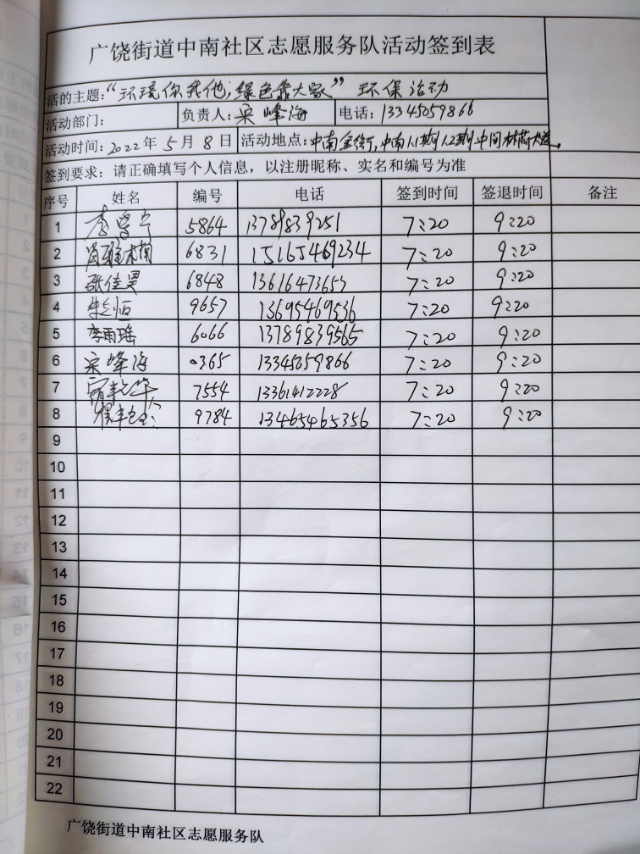 广饶街道中南社区志愿服务队活动签到表
活的主题：“环境你我他，绿色靠大家” 环保活动
活动部门： 负责人：宋峰海 电话：13345059866
活动时间：2022年5月8日 活动地点：中南金街，中南人1期人2期中间
签到要求：请正确填写个人信息，以注册昵称、实名和编号为准
序号 姓名 编号 电话 签到时间 签退时间 备注
1 5864 13789839251 7:20 9:20
2 6831 15165469234 7:20 9:20
3 张佳昊 6848 13616473653 7:20 9:20
4 9657 13695469536 7:20 9:20
5 李雨瑶 6066 13789839565 7:20 9:20
6 宋峰海 0365 13345059866 7:20 9:20
7 7554 13361412228 7:20 9:20
8 9784 13465465356 7:20 9:20
9
10
11
12
13
14
15
16
17
18
19
20
21
22
广饶街道中南社区志愿服务队